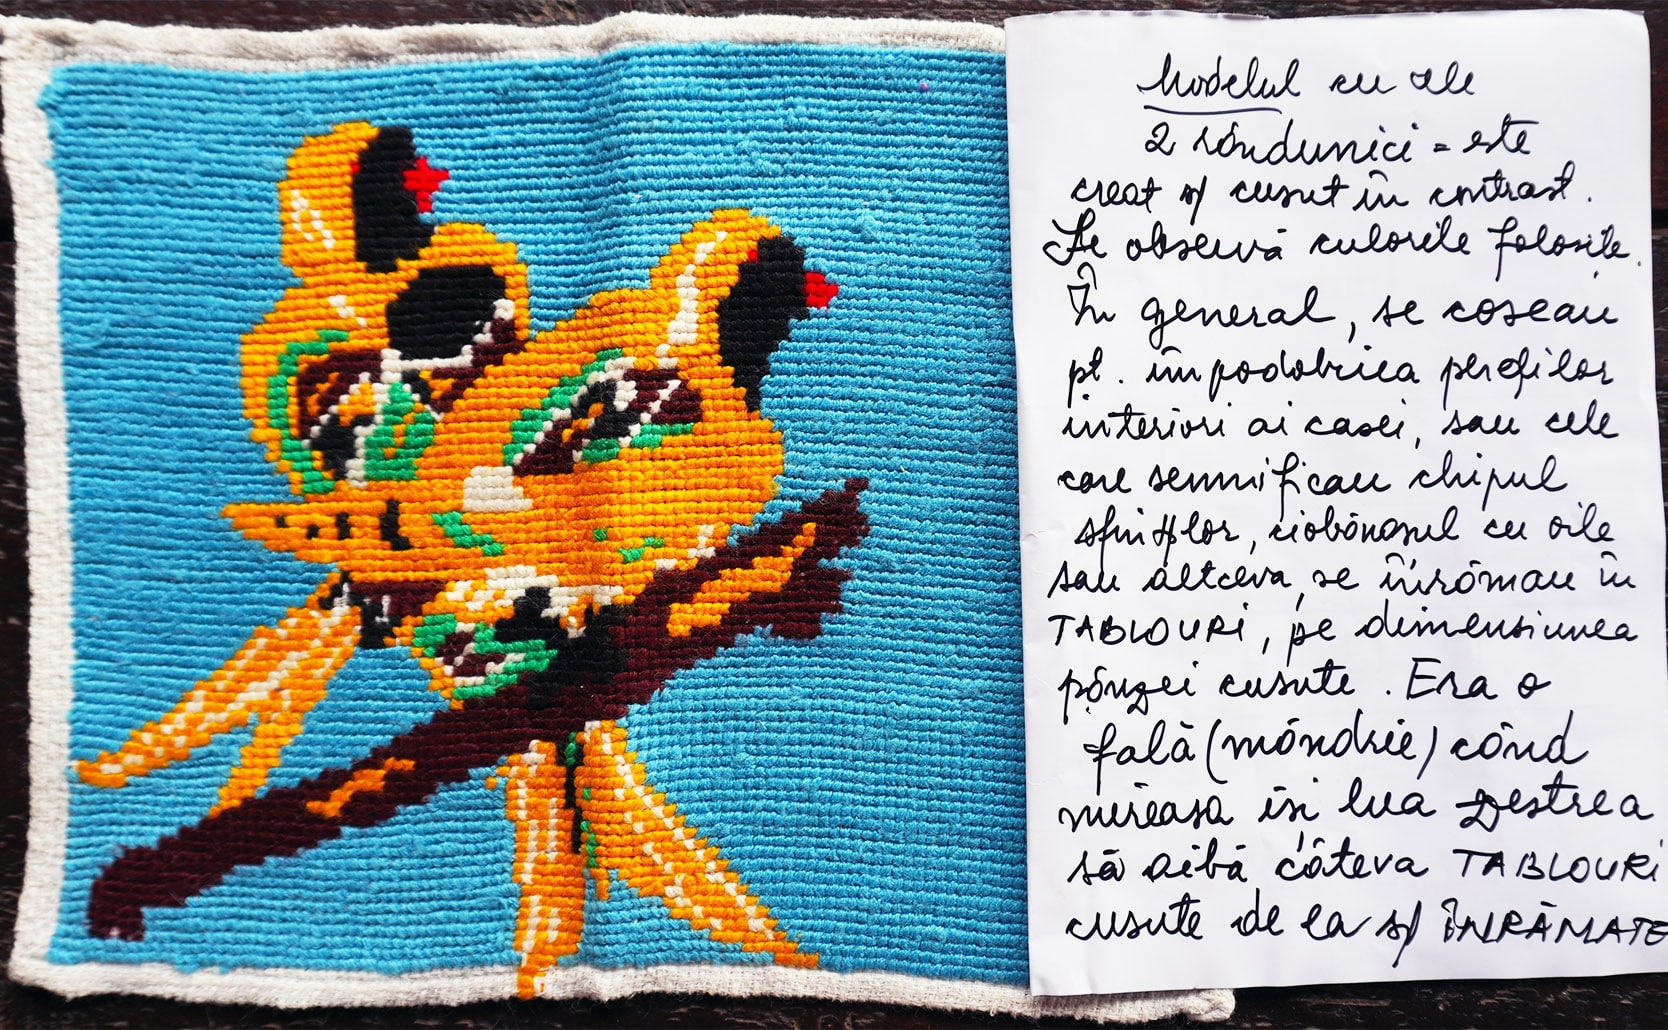 Modelul cu cele
2 rândunici = este
creat și cusut în contrast.
Se observă culorile folosite.
În general, se coseau
pt. împodobirea pereților
interiori ai casei, sau cele
care semnificau chipul
sfinților, ciobănașul cu oile
sau altceva, se înrămau în
TABLOURI, pe dimensiunea
pânzei cusute. Era o
fală (mândrie) când
mireasa își lua zestrea
să aibă câteva TABLOURI
cusute de ea și ÎNRĂMATE